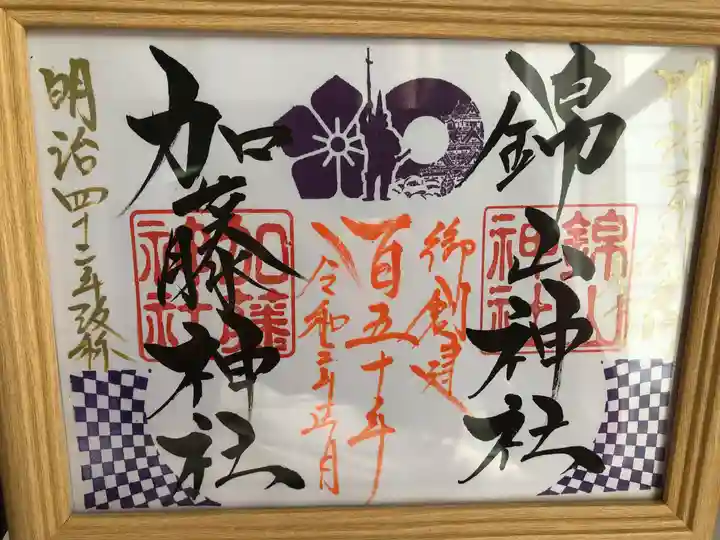 錦山神社
錦山神社
御創建
百五十年
令和三年正月
加藤神社
加藤神社
明治四十二年改称